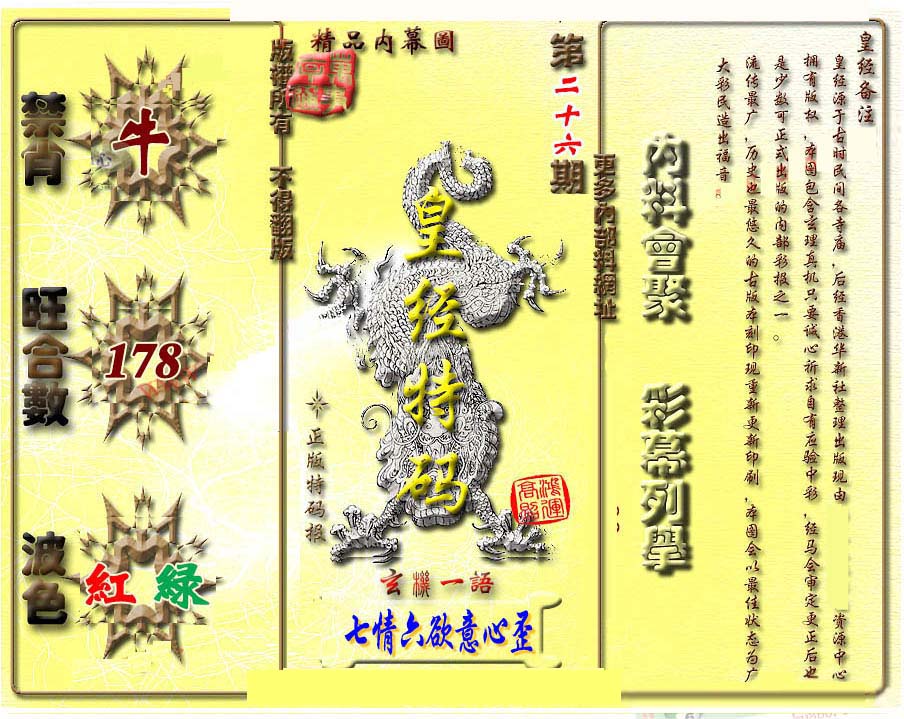 精品內幕圖
第二十六期
版權所有 不得翻版
更多內部料網址
禁肖
牛
旺合數
178
波色
紅 綠
皇经特码
正版特码报
鴻運高照
玄機一語
七情六欲意心歪
內料會聚
彩幕列舉
皇经备注
皇经源于古时民间各寺庙，后经香港华新社整理出版现由 资源中心
拥有版权，本图包含玄理真机只要诚心祈求自有应验中彩，经马会审定更正后也
是少数可正式出版的内部彩报之一。
流传最广，历史也最悠久的古版本刻印现重新更新印刷，本图会以最佳状态为广
大彩民造出福音